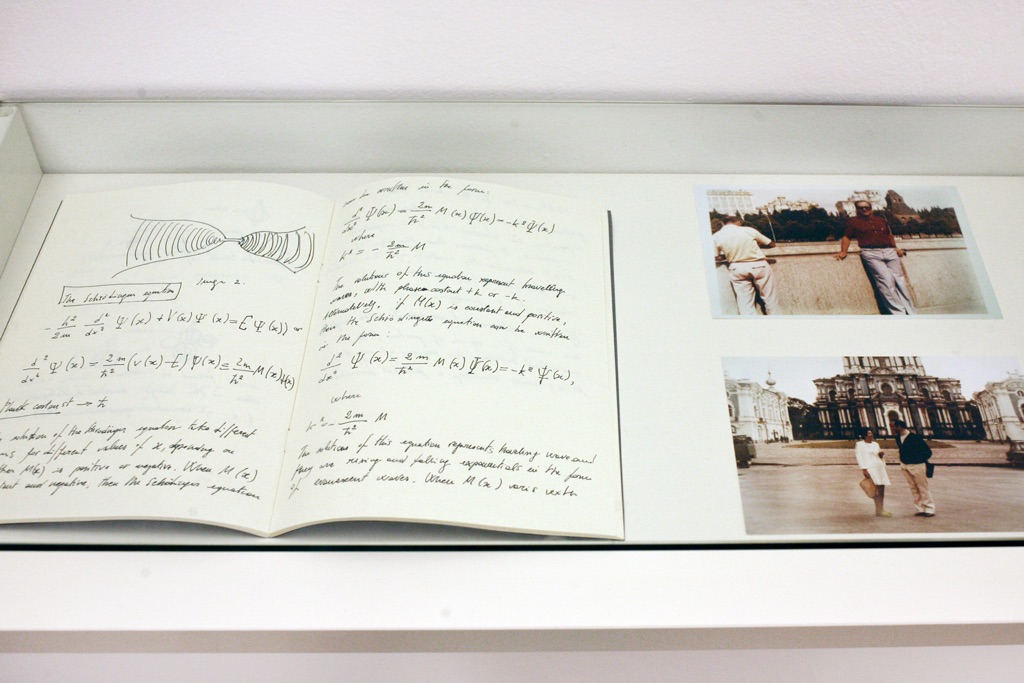 The Schrödinger equation
- ħ²/2m d²/dx² Ψ(x) + V(x) Ψ(x) = E Ψ(x)) or
d²/dx² Ψ(x) = 2m/ħ² (V(x) - E) Ψ(x) = 2m/ħ² M(x)Ψ(x)
constant → ħ
solution of the Schrodinger equation take different
for different values of x, depending on
M(x) is positive or negative. When M(x)
and negative, then the Schrödinger equation
be written in the form:
d²/dx² Ψ(x) = 2m/ħ² M(x) Ψ(x) = -k² Ψ(x)
where
k² = - 2m/ħ² M
The solutions of this equation represent travelling
waves, with phase constant +k or -k.
Alternatively, if M(x) is constant and positive,
then the Schrödinger equation can be written
in the form:
d²/dx² Ψ(x) = 2m/ħ² M(x) Ψ(x) = -k² Ψ(x),
where
k² = - 2m/ħ² M
The solutions of this equation represents traveling wave and
they are rising and falling exponentials in the form
of evanescent waves. When M(x) with